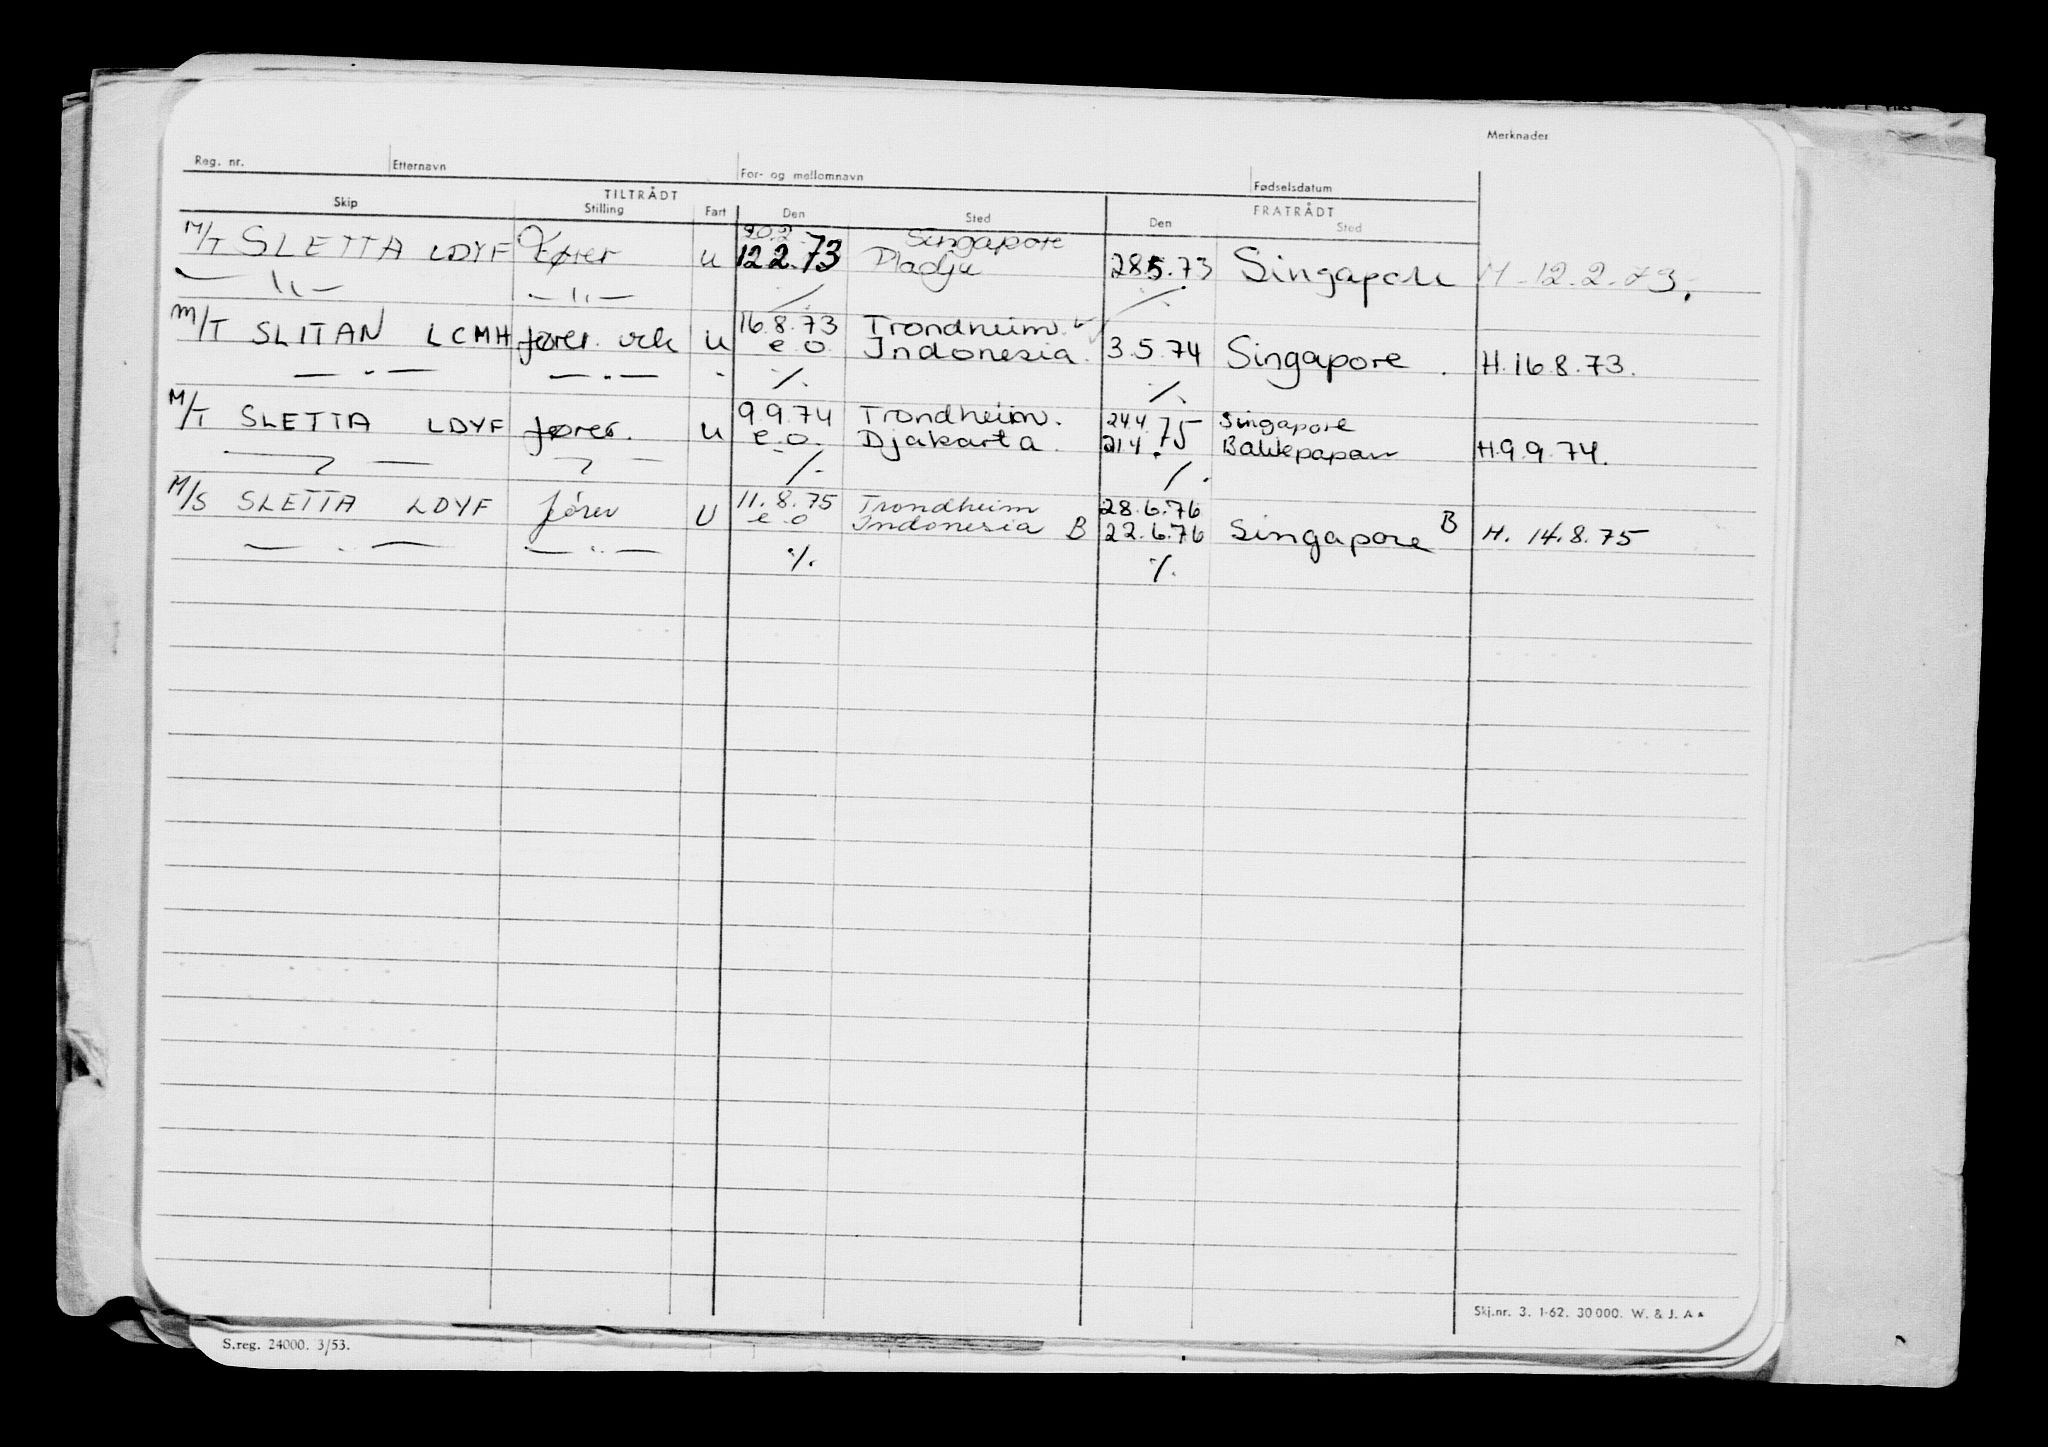 Merknader
Reg. nr. Etternavn For- og mellomnavn Fødselsdatum
TILTRÅDT FRATRÅDT
Skip Stilling Fart Den Sted Den Sted
20.2. Singapore
M/T SLETTA LDYF Fører u 12.2.73 Pladju 28.5.73 Singapore H. 12.2.73.
— " — — " — ./. ./.
16.8.73 Trondheim.
M/T SLITAN LCMH fører. vek u e.o. Indonesia. 3.5.74 Singapore. H.16.8.73.
— " — — " — ./. ./.
9.9.74 Trondheim. 24.4 Singapore
M/T SLETTA LDYF fører. u e.o. Djakarta. 21.4.75 Balikpapan H.9.9.74.
— " — — " — ./. ./.
11.8.75 Trondheim 28.6.76
M/S SLETTA LDYF fører U e.o Indonesia B 22.6.76 Singapore B H. 14.8.75
— " — — " — ./. ./.
Skj.nr. 3. 1-62. 30 000. W. & J. A
S.reg. 24000. 3/53.